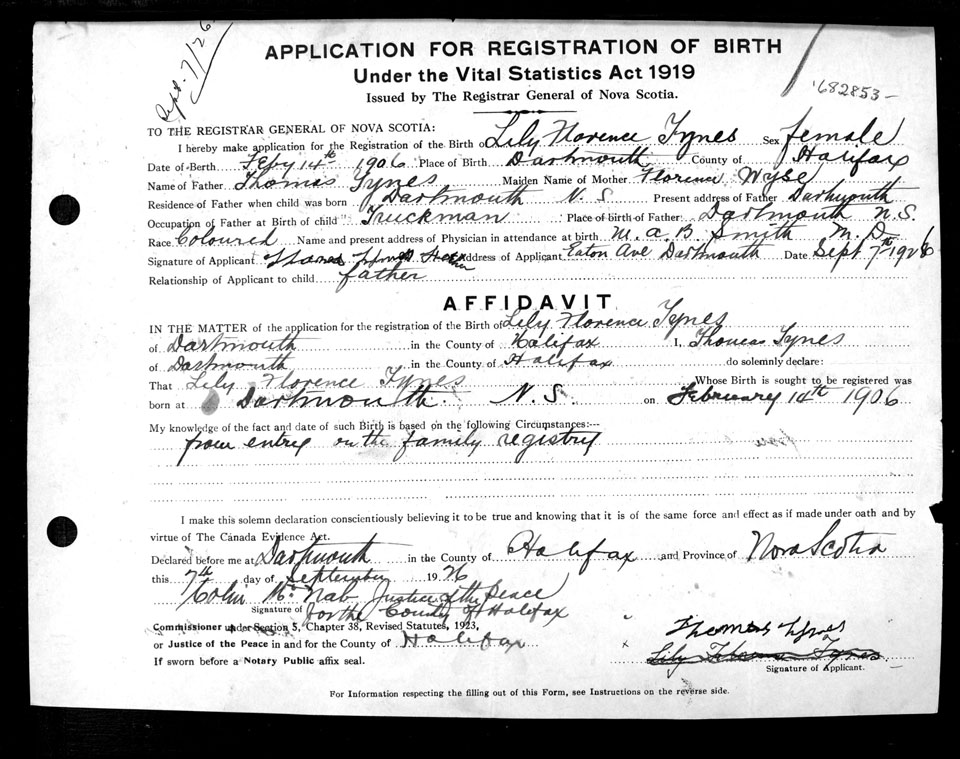 Sept. 7/26
APPLICATION FOR REGISTRATION OF BIRTH
Under the Vital Statistics Act 1919
Issued by The Registrar General of Nova Scotia.
682853-
TO THE REGISTRAR GENERAL OF NOVA SCOTIA:
I hereby make application for the Registration of the Birth of Lily Florence Tynes Sex female
Date of Berth Feby 14th 1906 Place of Birth Dartmouth County of Halifax
Name of Father Thomas Tynes Maiden Name of Mother Florence Wyse
Residence of Father when child was born Dartmouth N. S Present address of Father Dartmouth
Occupation of Father at Birth of child Truckman Place of birth of Father: Dartmouth N.S.
Race Coloured Name and present address of Physician in attendance at birth M. A. B. Smith M. D.
Signature of Applicant Thomas Tynes Address of Applicant Eaton Ave Dartmouth Date Sept 7th 1926
Relationship of Applicant to child father
AFFIDAVIT
IN THE MATTER of the application for the registration of the Birth of Lily Florence Tynes
of Dartmouth in the County of Halifax I, Thomas Tynes
of Dartmouth in the County of Halifax do solemnly declare:
That Lily Florence Tynes Whose Birth is sought to be registered was
born at Dartmouth N. S. on February 14th 1906
My knowledge of the fact and date of such Birth is based on the following Circumstances:--
from entry on the family registry
I make this solemn declaration conscientiously believing it to be true and knowing that it is of the same force and effect as if made under oath and by
virtue of The Canada Evidence Act.
Declared before me at Dartmouth in the County of Halifax and Province of Nova Scotia
this 7th day of September 1926
Colin McNab Justice of the Peace
Signature of for the County of Halifax
Commissioner under Section 5, Chapter 38, Revised Statutes, 1923,
or Justice of the Peace in and for the County of Halifax
Thomas Tynes
If sworn before a Notary Public affix seal.
Lily Tynes
Signature of Applicant.
For Information respecting the filling out of this Form, see Instructions on the reverse side.